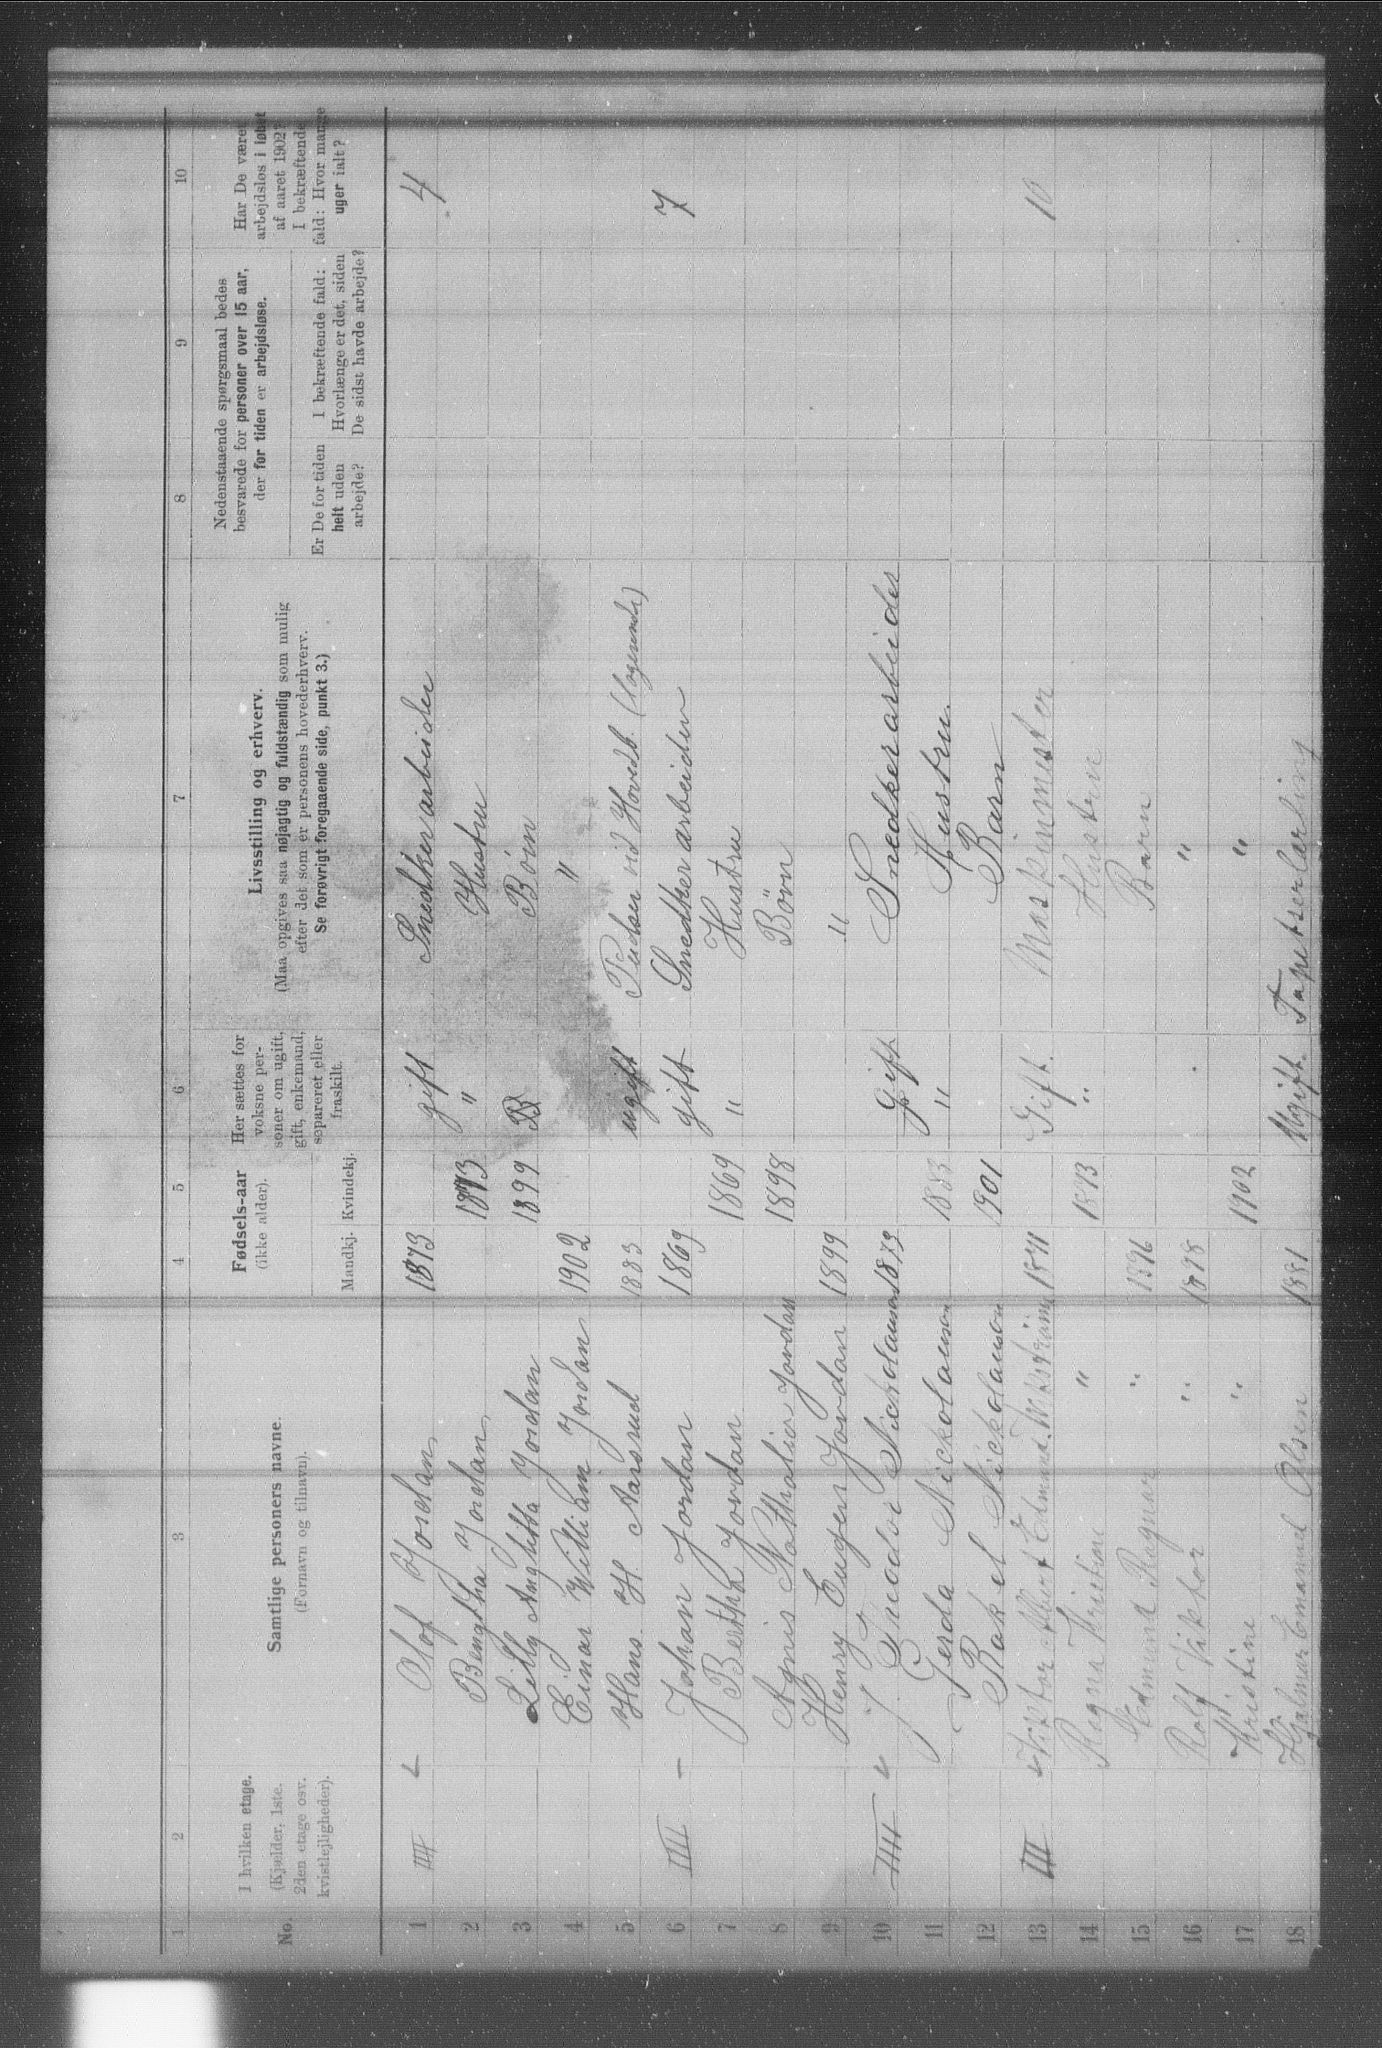 1 2 3 4 5 6 7 8 9 10
No.
I hvilken etage.
(Kjælder, 1ste.
2den etage osv.
kvistlejligheder).
Samtlige personers navne.
(Fornavn og tilnavn).
Fødsels-aar
(ikke alder).
Mandkj. Kvindekj.
Her sættes for
voksne per-
soner om ugift,
gift, enkemand,
separeret eller
fraskilt.
Livsstilling og erhverv.
(Maa opgives saa nøjagtig og fuldstændig som mulig
efter det som er personens hovederhverv.
Se forøvrigt foregaaende side, punkt 3.)
Nedenstaaende spørgsmaal bedes
besvarede for personer over 15 aar,
der for tiden er arbejdsløse.
Er De for tiden
helt uden
arbejde?
I bekræftende fald:
Hvorlænge er det, siden
De sidst havde arbejde?
Har De været
arbejdsløs i løbet
af aaret 1902?
I bekræftende
fald: Hvor mange
uger ialt?
1 III Olof Jordan 1873 gift Snedkerarbeider 4
2 Bengtha Jordan 1873 " Hustru
3 Lilly Jordan 1899 B Börn
4 Einar William Jordan 1902 "
5 Hans H Aarsrud 1883 ugift Pudser vid Hovedb. (Logerende)
6 IIII Johan Jordan 1869 gift Snedkerarbeider 7
7 Bertha Jordan 1869 " Hustru
8 Agnis Natthalia Jordan 1898 Börn
9 Henry Eugen Jordan 1899 "
10 IIII J. Nickolauson 1879 gift Snedkerarbeider
11 Gerda Nickolauson 1883 " Hustru.
12 Rakel Nickolauson 1901 Barn
13 III Viktor Albert Edmund Wikström 1871 Gift. Maskinmester 10
14 Ragna Kristine " 1873 " Hustru
15 Edmund Ragnar " 1896 Barn
16 Rolf Viktor " 1898 "
17 Kristine " 1902 "
18 Hjalmar Emanuel Olsen 1881 Ugift. Tapetserlærling